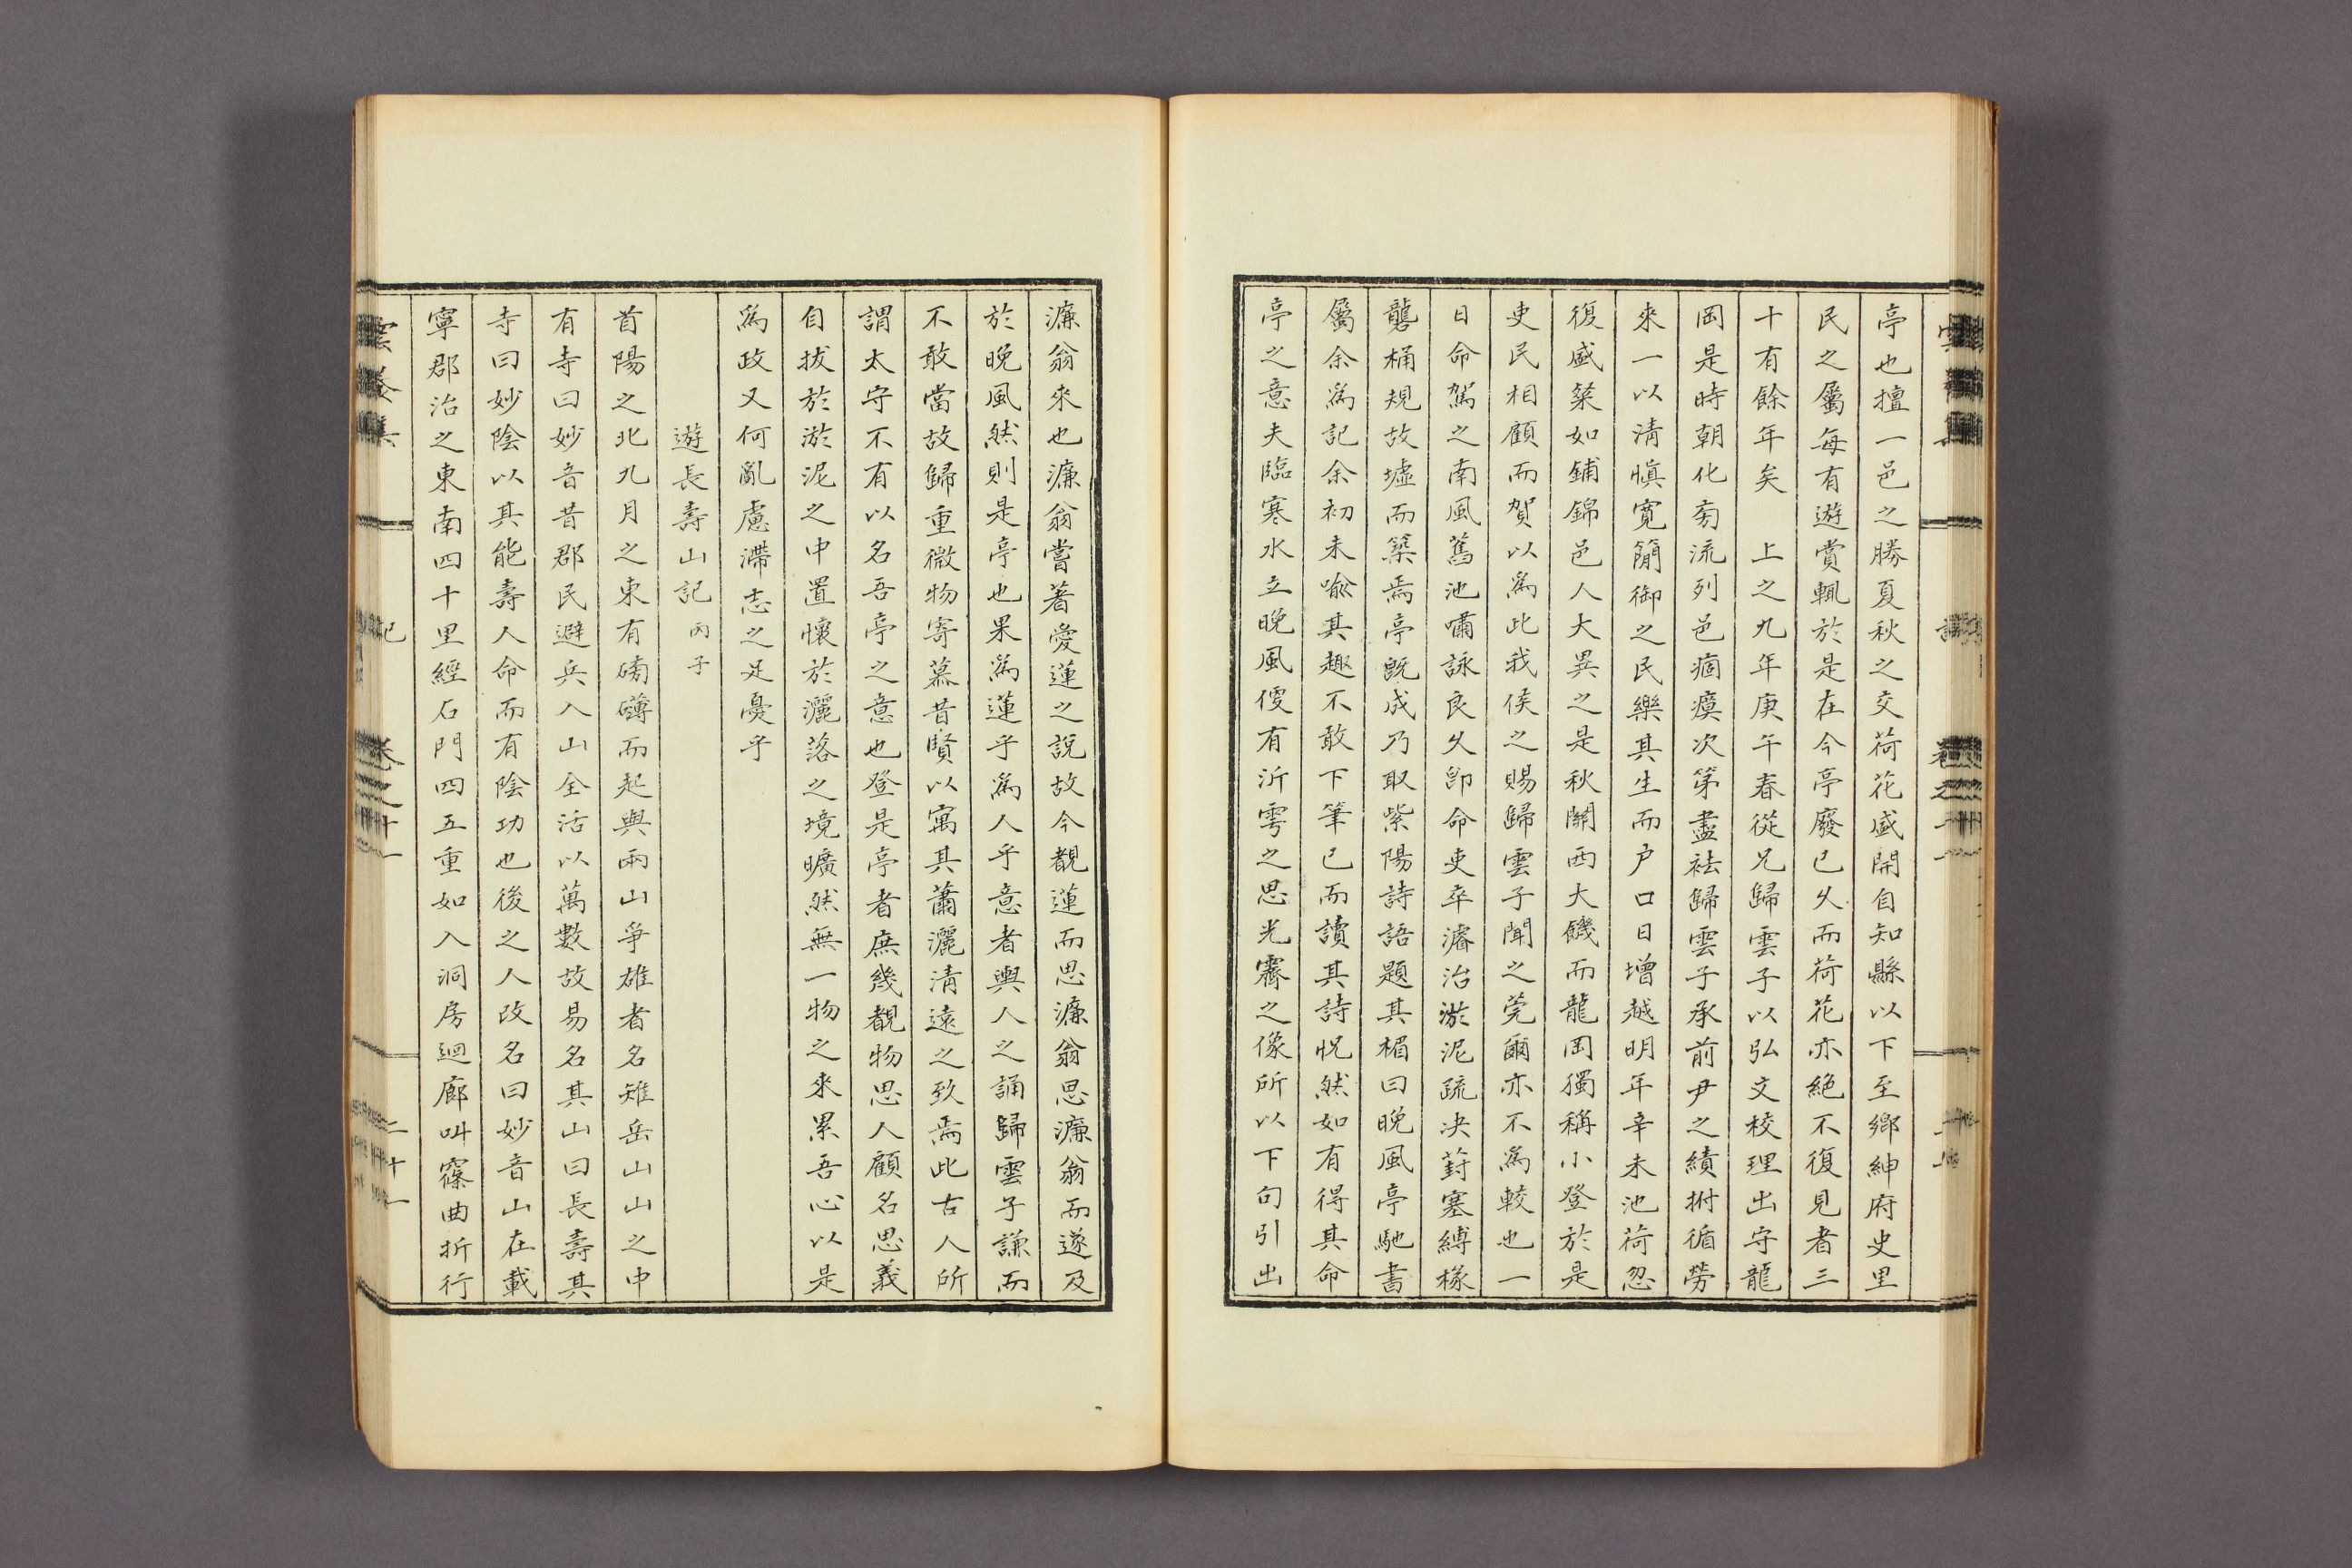 亭也擅一邑之勝夏秋之交荷花盛開自知縣以下至鄉紳府史里
民之屬每有遊賞輒於是在今亭廢已久而荷花亦絶不復見者三
十有餘年矣 上之九年庚午春從兄歸雲子以弘文校理出守龍
岡是時朝化旁流列邑痼瘼次第盡祛歸雲子承前尹之績拊循勞
來一以清愼寛簡御之民樂其生而户口日增越明年辛未池荷忽
復盛粲如鋪錦邑人大異之是秋關西大饑而龍岡獨稱小登於是
吏民相顧而賀以爲此我侯之賜歸雲子聞之莞爾亦不爲較也一
日命駕之南風舊池嘯詠良久卽命吏卒濬治淤泥疏决葑塞縛椽
甃桶規故墟而築焉亭旣成乃取紫陽詩語題其楣曰晚風亭馳書
屬余爲記余初未喩其趣不敢下筆已而讀其詩怳然如有得其命
亭之意夫臨寒水立晚風便有沂雩之思光霽之像所以下句引出
濂翁來也濂翁嘗著愛蓮之說故今覩蓮而思濂翁思濂翁而遂及
於晚風然則是亭也果爲蓮乎爲人乎意者輿人之誦歸雲子謙而
不敢當故歸重微物寄慕昔賢以寓其蕭灑清遠之致焉此古人所
謂太守不有以名吾亭之意也登是亭者庶幾覩物思人顧名思義
自拔於淤泥之中置懷於灑落之境曠然無一物之來累吾心以是
爲政又何亂慮滯志之足憂乎
遊長壽山記 丙子
首陽之北九月之東有磅礴而起與兩山爭雄者名雉岳山山之中
有寺曰妙音昔郡民避兵入山全活以萬數故易名其山曰長壽其
寺曰妙陰以其能壽人命而有陰功也後之人改名曰妙音山在載
寧郡治之東南四十里經石門四五重如入洞房廻廊叫窱曲折行
記 卷之十一 二十一